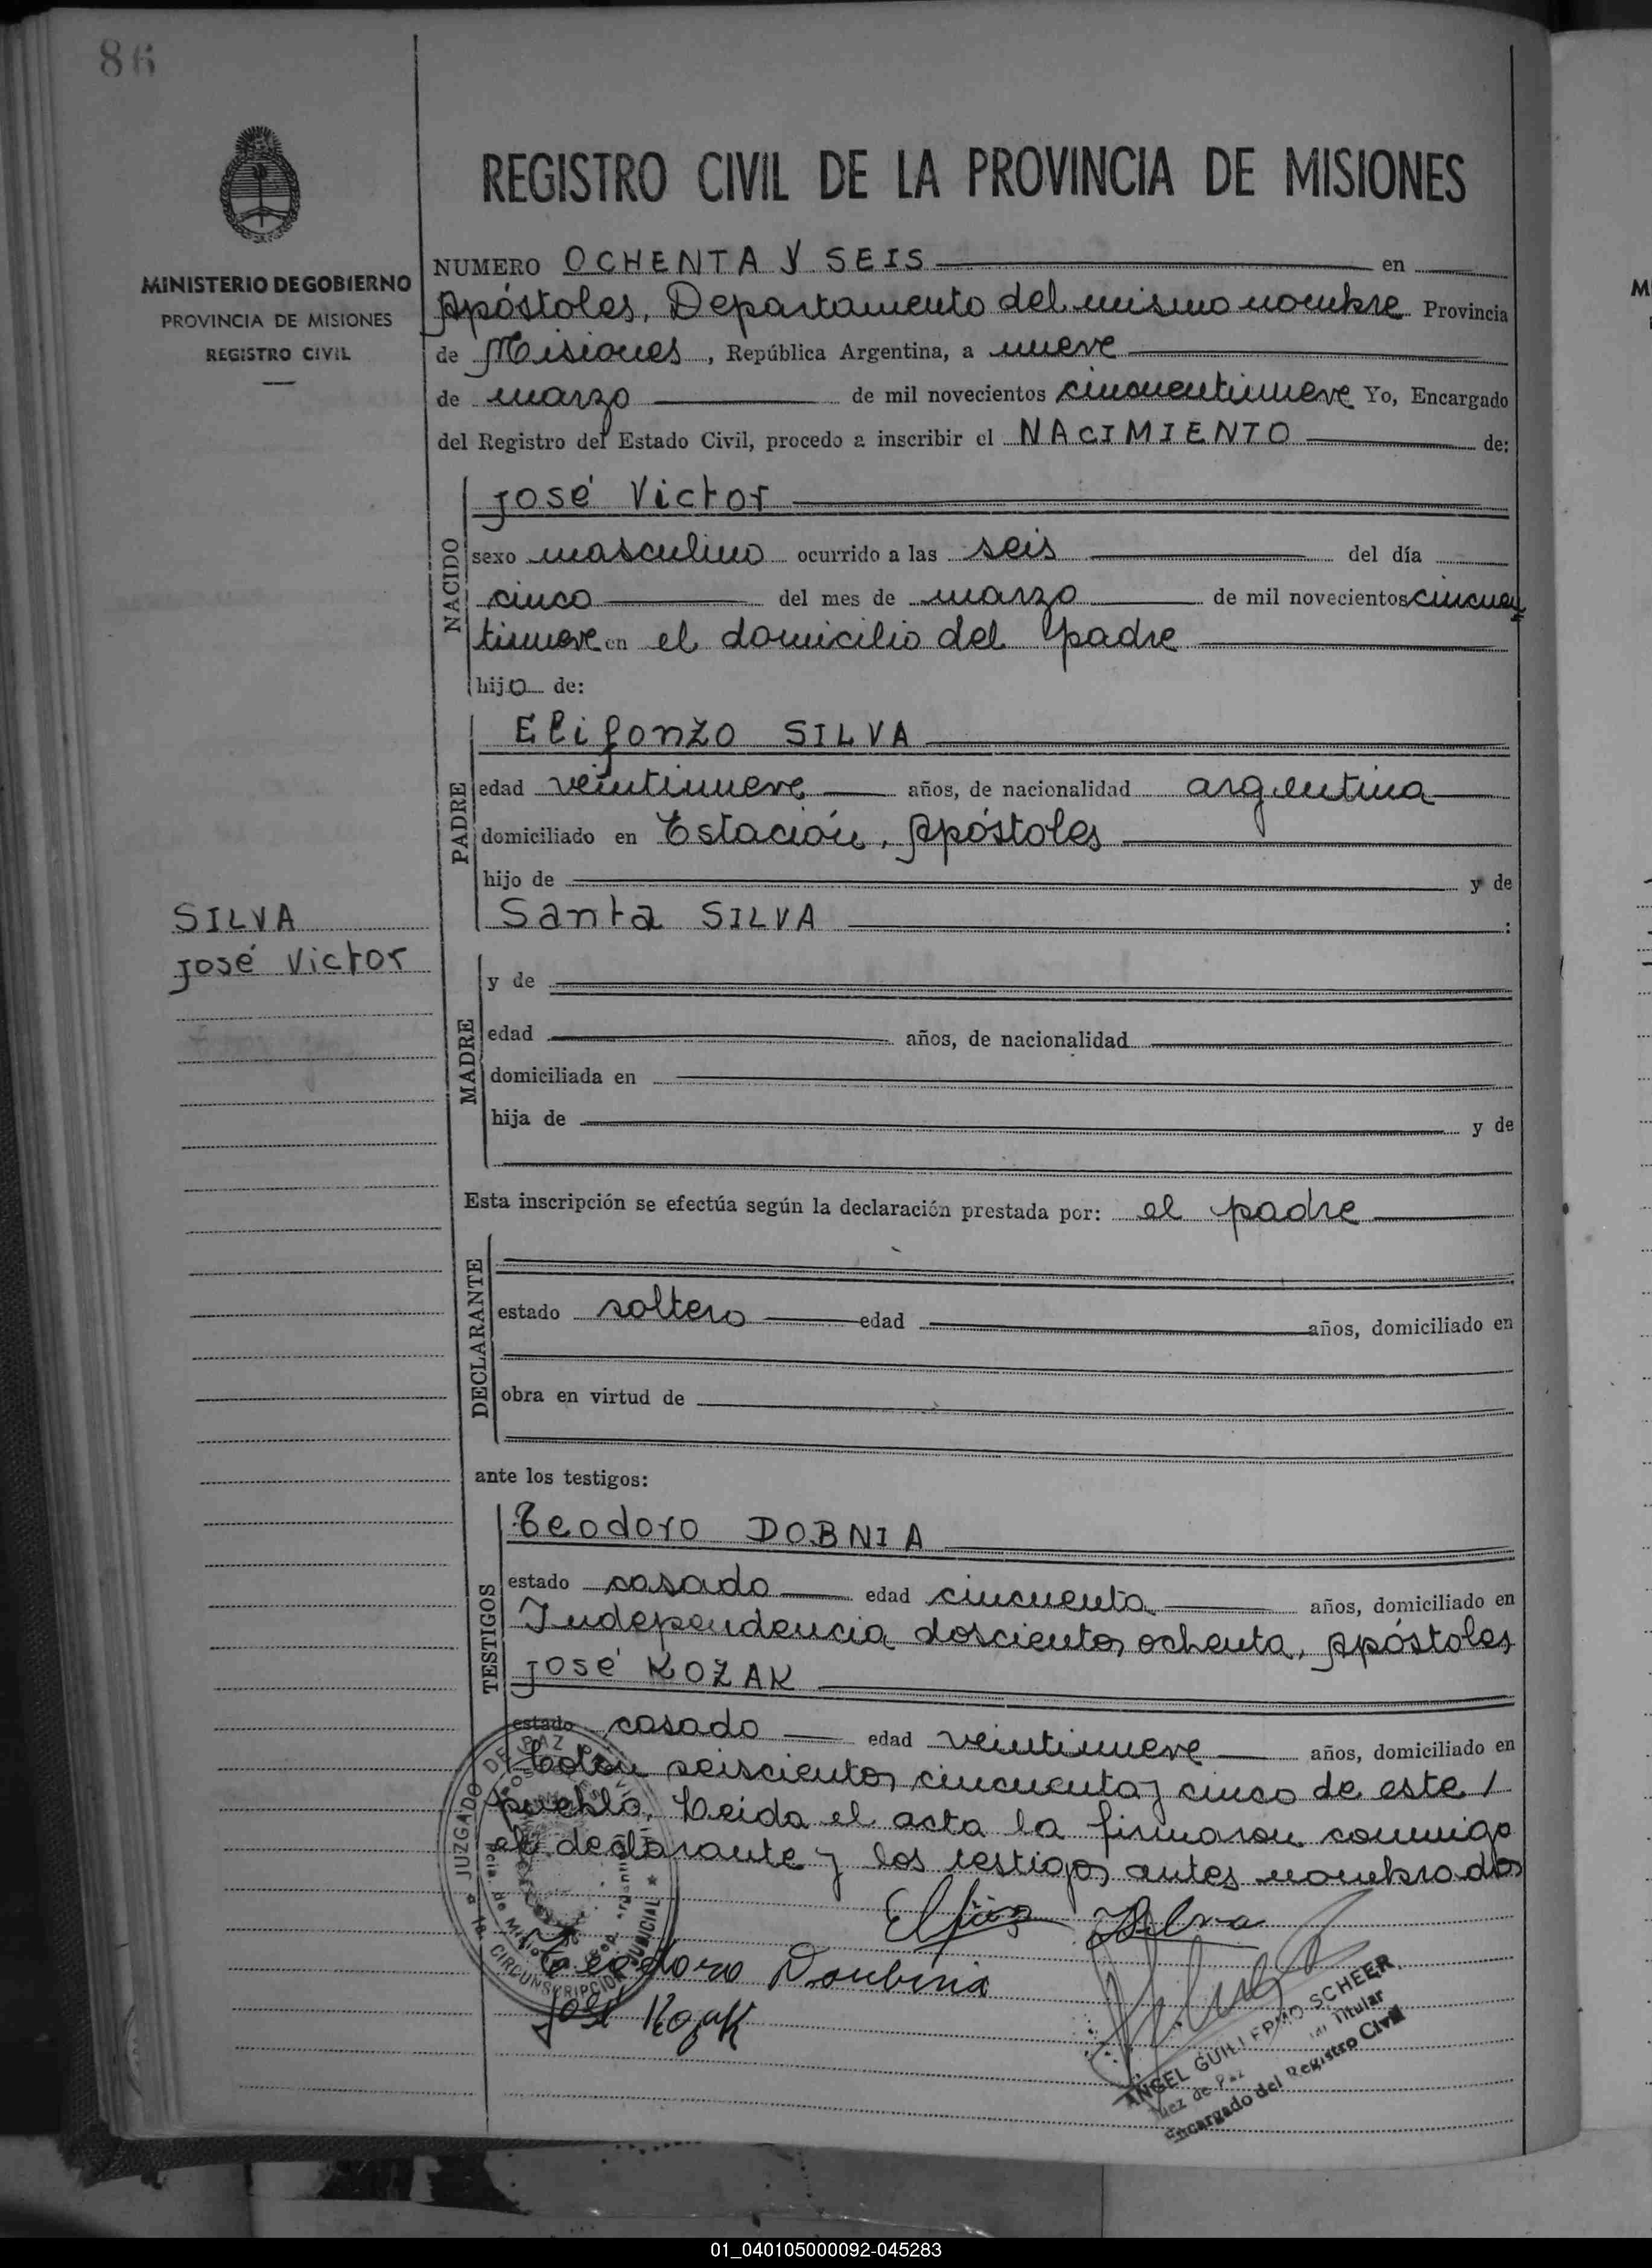 86
MINISTERIO DE GOBIERNO
PROVINCIA DE MISIONES
REGISTRO CIVIL
REGISTRO CIVIL DE LA PROVINCIA DE MISIONES
NUMERO OCHENTA Y SEIS en
Apóstoles, Departamento del mismo nombre Provincia
de Misiones, República Argentina, a nueve
de marzo de mil novecientos cincuentinueve Yo, Encargado
del Registro del Estado Civil, procedo a inscribir el NACIMIENTO de:
NACIDO
José Victor
sexo masculino ocurrido a las seis del día
cinco del mes de marzo de mil novecientos cincuen
tinueve en el domicilio del padre
hijo de:
PADRE
Elifonzo SILVA
edad veintinueve años, de nacionalidad argentina
domiciliado en Estación, Apóstoles
hijo de y de
Santa SILVA :
SILVA
José Victor
MADRE
y de
edad años, de nacionalidad
domiciliada en
hija de y de
Esta inscripción se efectúa según la declaración prestada por: el padre
DECLARANTE
estado soltero edad años, domiciliado en
obra en virtud de
ante los testigos:
TESTIGOS
Teodoro DOBNIA
estado casado edad cincuenta años, domiciliado en
Independencia doscientos ochenta, Apóstoles
José KOZAK
estado casado edad veintinueve años, domiciliado en
Colón seiscientos cincuenta y cinco de este /
pueblo. Leida el acta la firmaron conmigo
el declarante y los testigos antes nombrados
Silva
Teodoro Doubnia
José Kozak
JUZGADO DE PAZ
CIRCUNSCRIPCION JUDICIAL
ANGEL GUILLERMO SCHEER
Juez de Paz Titular
Encargado del Registro Civil
01_040105000092-045283